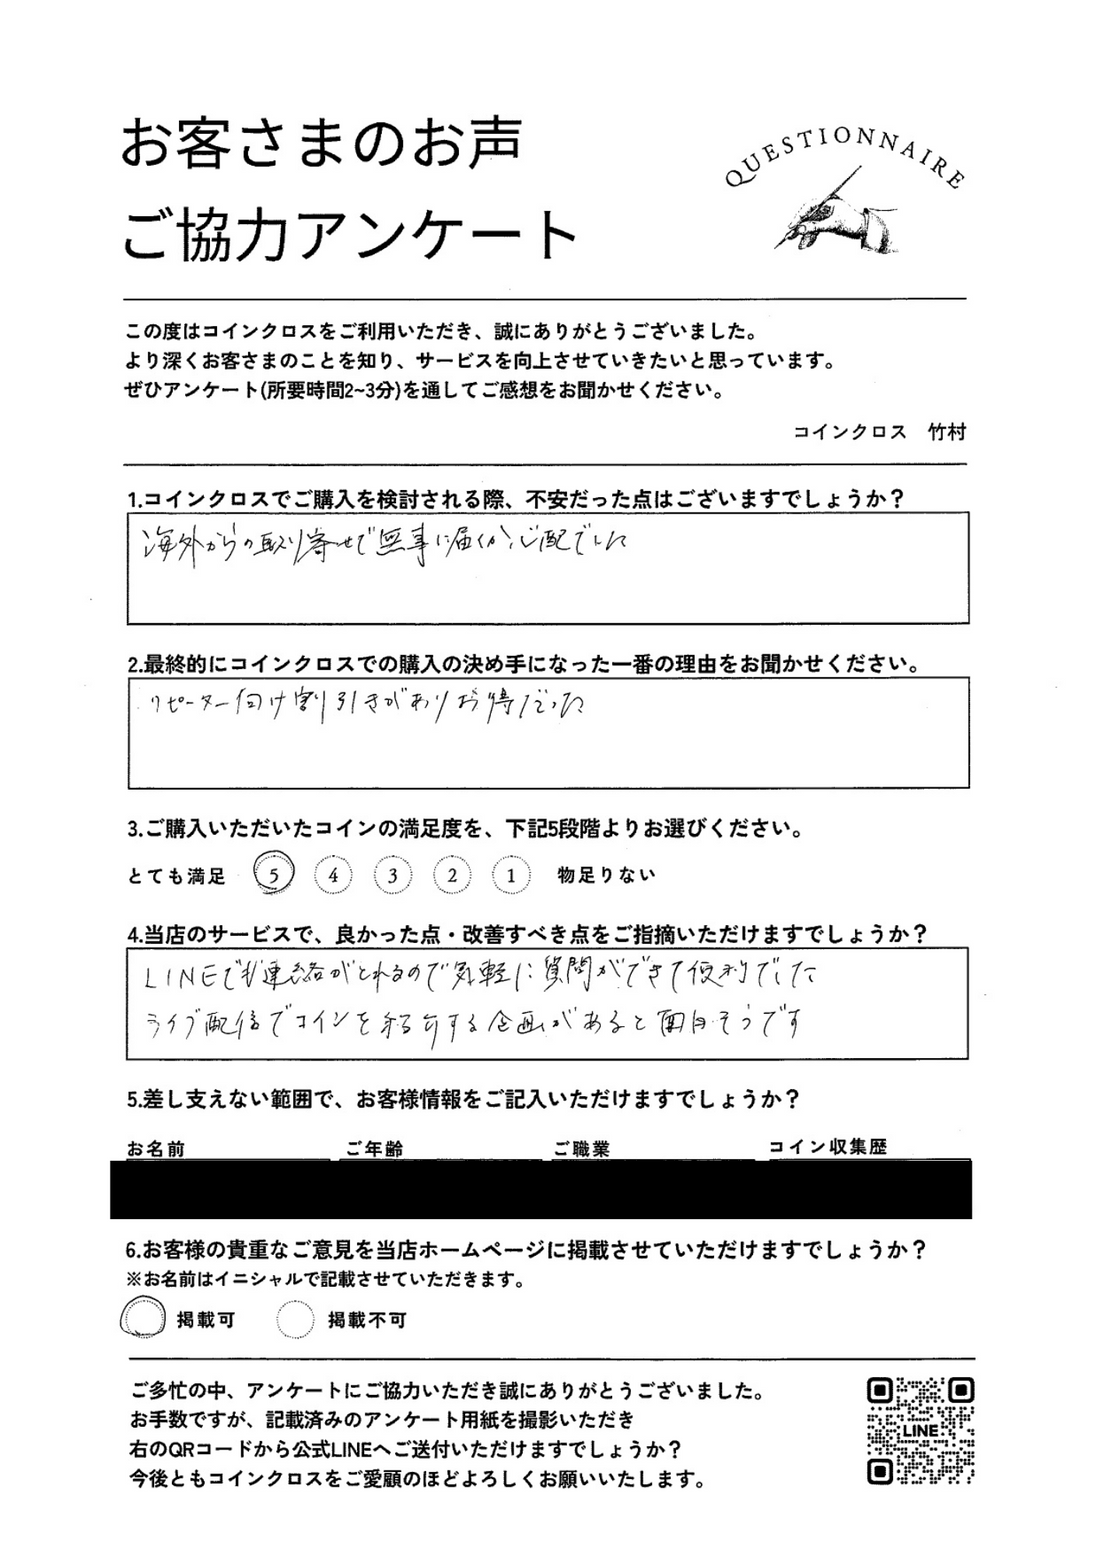 お客さまのお声
ご協力アンケート
QUESTIONNAIRE
この度はコインクロスをご利用いただき、誠にありがとうございました。
より深くお客さまのことを知り、サービスを向上させていきたいと思っています。
ぜひアンケート(所要時間2~3分)を通してご感想をお聞かせください。
コインクロス 竹村
1.コインクロスでご購入を検討される際、不安だった点はございますでしょうか？
海外からの取り寄せで無事に届くか心配でした
2.最終的にコインクロスでの購入の決め手になった一番の理由をお聞かせください。
リピーター向け割引きがありお得だった
3.ご購入いただいたコインの満足度を、下記5段階よりお選びください。
とても満足 5 4 3 2 1 物足りない
4.当店のサービスで、良かった点・改善すべき点をご指摘いただけますでしょうか？
LINEでも連絡がとれるので気軽に質問ができて便利でした
ライブ配信でコインを紹介する企画があると面白そうです
5.差し支えない範囲で、お客様情報をご記入いただけますでしょうか？
お名前 ご年齢 ご職業 コイン収集歴
6.お客様の貴重なご意見を当店ホームページに掲載させていただけますでしょうか？
※お名前はイニシャルで記載させていただきます。
掲載可 掲載不可
ご多忙の中、アンケートにご協力いただき誠にありがとうございました。
お手数ですが、記載済みのアンケート用紙を撮影いただき
右のQRコードから公式LINEへご送付いただけますでしょうか？
今後ともコインクロスをご愛顧のほどよろしくお願いいたします。
LINE